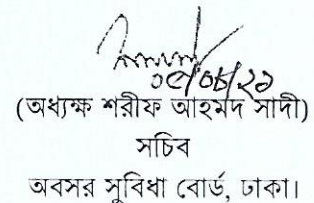 ০৫/০৮/২১
(অধ্যক্ষ শরীফ আহমদ সাদী)
সচিব
অবসর সুবিধা বোর্ড, ঢাকা।